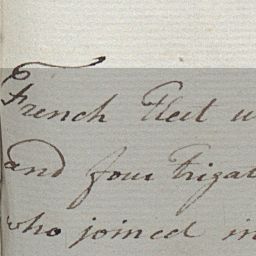 French Fleet w
and four Frigat
who joined in